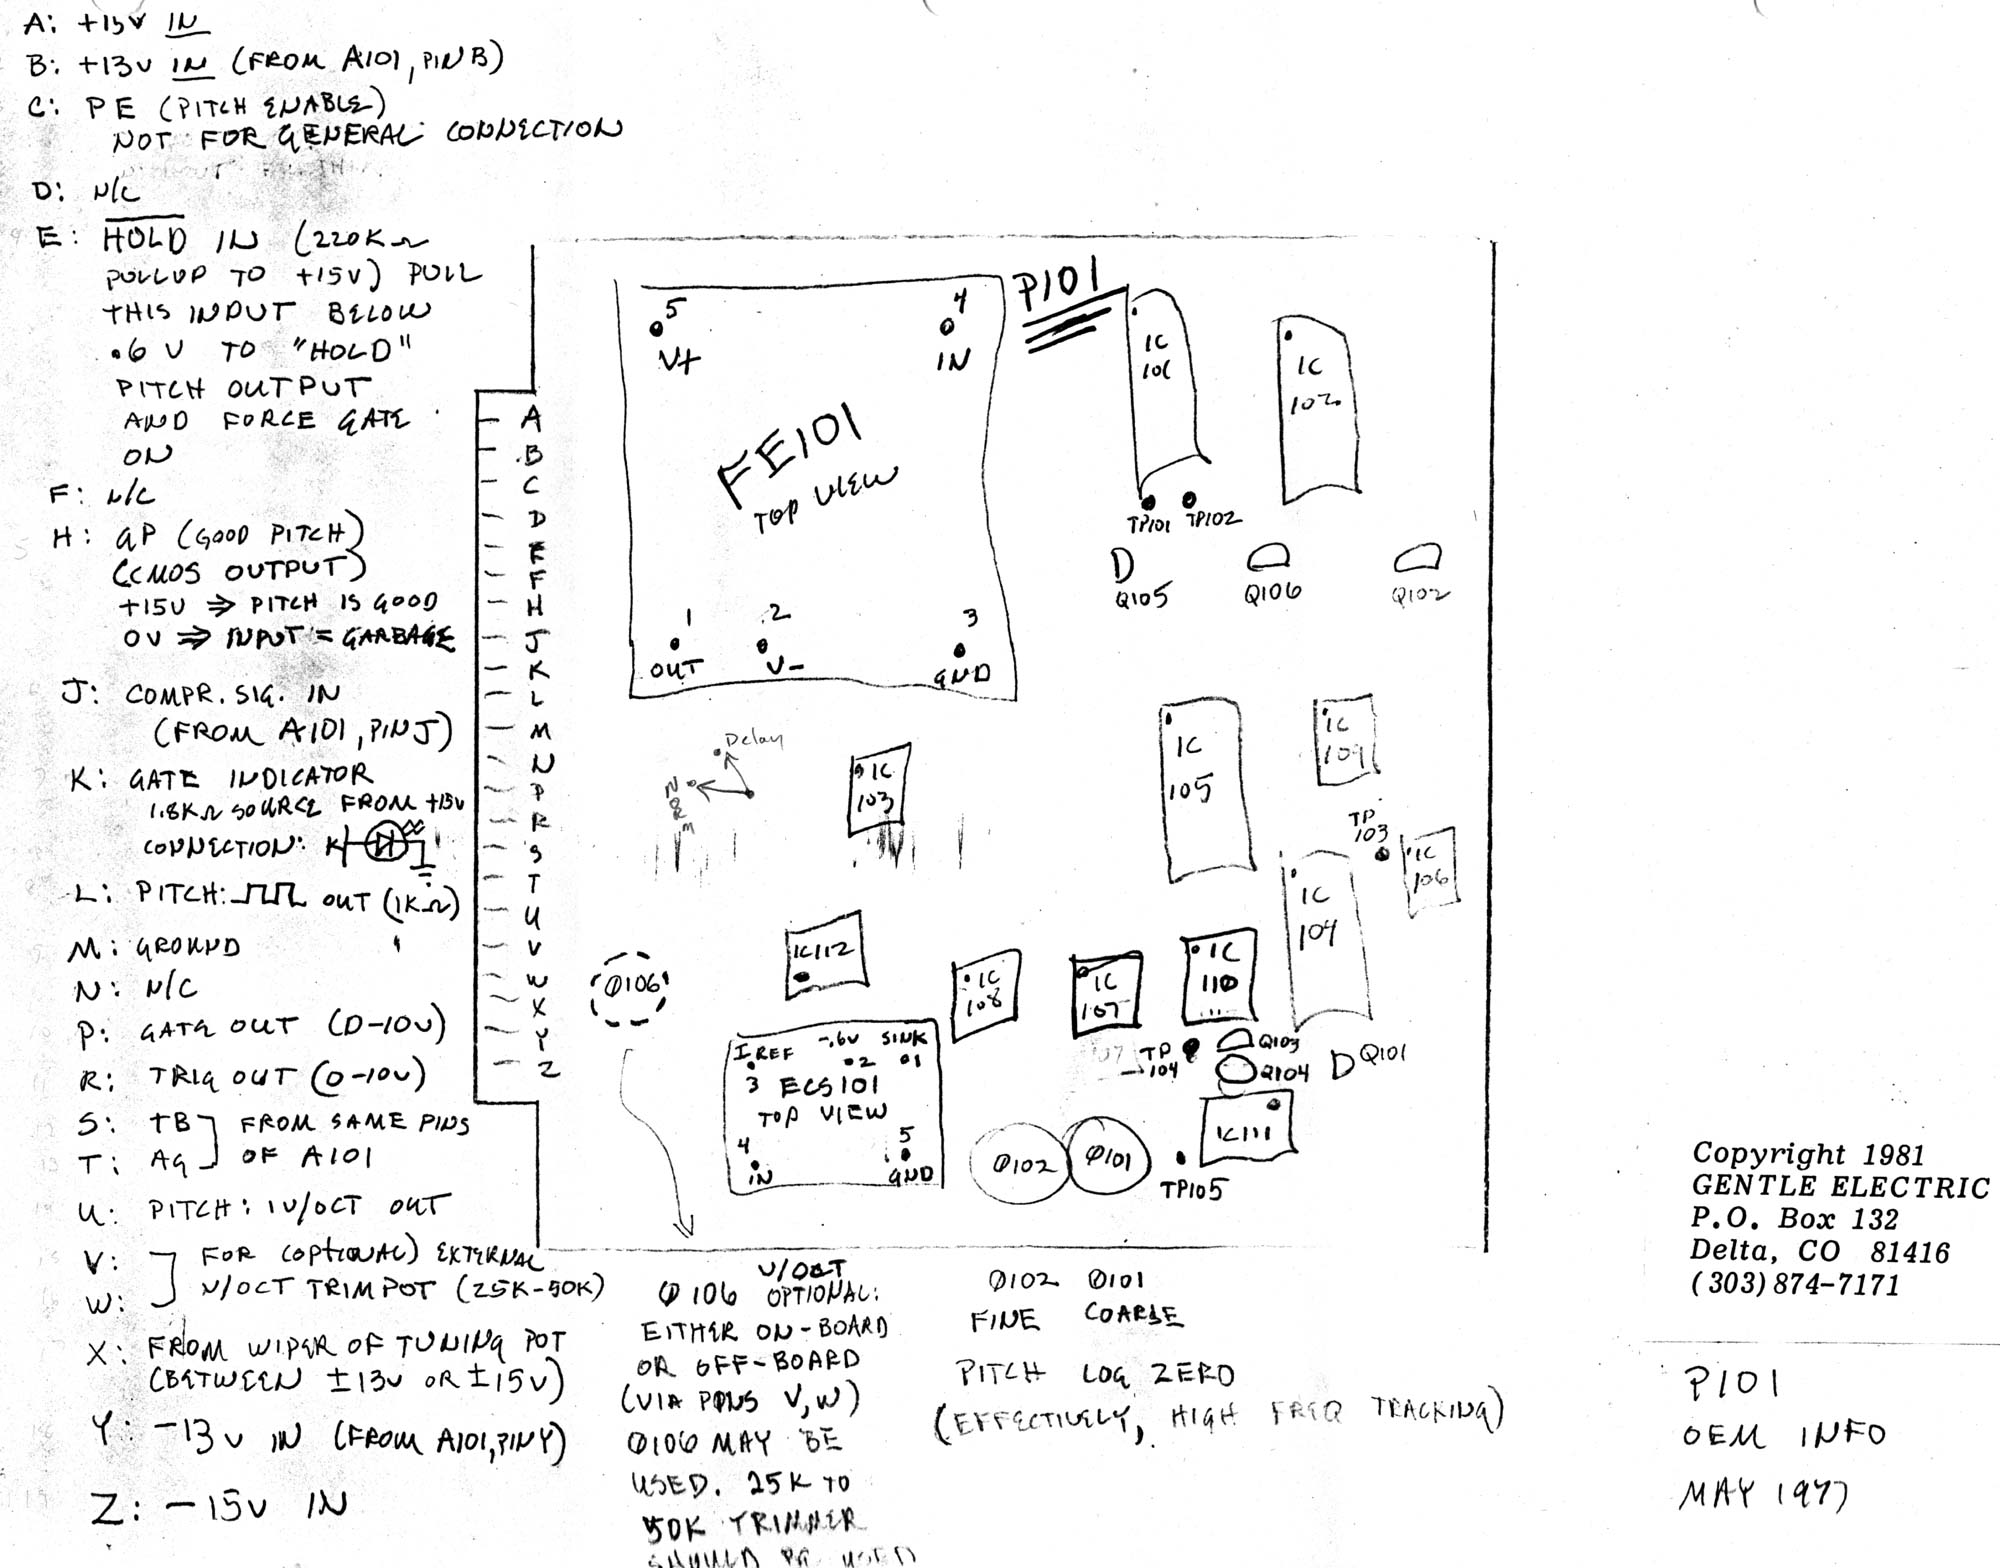 A: +15V IN
B: +13V IN (FROM A101, PIN B)
C: PE (PITCH ENABLE)
NOT FOR GENERAL CONNECTION
D: N/C
E: HOLD IN (220KΩ
PULLUP TO +15V) PULL
THIS INPUT BELOW
.6 V TO "HOLD"
PITCH OUTPUT
AND FORCE GATE
ON
F: N/C
H: GP (GOOD PITCH)
(CMOS OUTPUT)
+15V ⇒ PITCH IS GOOD
0V ⇒ INPUT = GARBAGE
J: COMPR. SIG. IN
(FROM A101, PIN J)
K: GATE INDICATOR
1.8KΩ SOURCE FROM +15V
CONNECTION: K
L: PITCH: OUT (1KΩ)
M: GROUND
N: N/C
P: GATE OUT (0-10V)
R: TRIG OUT (0-10V)
S: TB FROM SAME PINS
T: AG OF A101
U: PITCH: 1V/OCT OUT
V: FOR (OPTIONAL) EXTERNAL
W: V/OCT TRIMPOT (25K-50K)
X: FROM WIPER OF TUNING POT
(BETWEEN ±13V OR ±15V)
Y: -13V IN (FROM A101, PIN Y)
Z: -15V IN
P101
A
B
C
D
E
F
H
J
K
L
M
N
P
R
S
T
U
V
W
X
Y
Z
5
V+
4
IN
FE101
TOP VIEW
1
OUT
2
V-
3
GND
IC
101
IC
102
TP101
TP102
Q105
Q106
Q102
Delay
NORM
IC
103
IC
105
IC
109
TP
103
IC
106
IC
104
IC112
IC
108
IC
107
IC
110
Ø106
I REF
-.6V
SINK
3
2
1
ECS101
TOP VIEW
4
IN
5
GND
TP
104
Q103
Q104
Q101
IC111
Ø102
Ø101
TP105
V/OCT
Ø106 OPTIONAL:
EITHER ON-BOARD
OR OFF-BOARD
(VIA PINS V,W)
Ø106 MAY BE
USED. 25K TO
50K TRIMMER
SHOULD BE USED
Ø102 Ø101
FINE COARSE
PITCH LOG ZERO
(EFFECTIVELY, HIGH FREQ TRACKING)
Copyright 1981
GENTLE ELECTRIC
P.O. Box 132
Delta, CO 81416
(303) 874-7171
P101
OEM INFO
MAY 1977